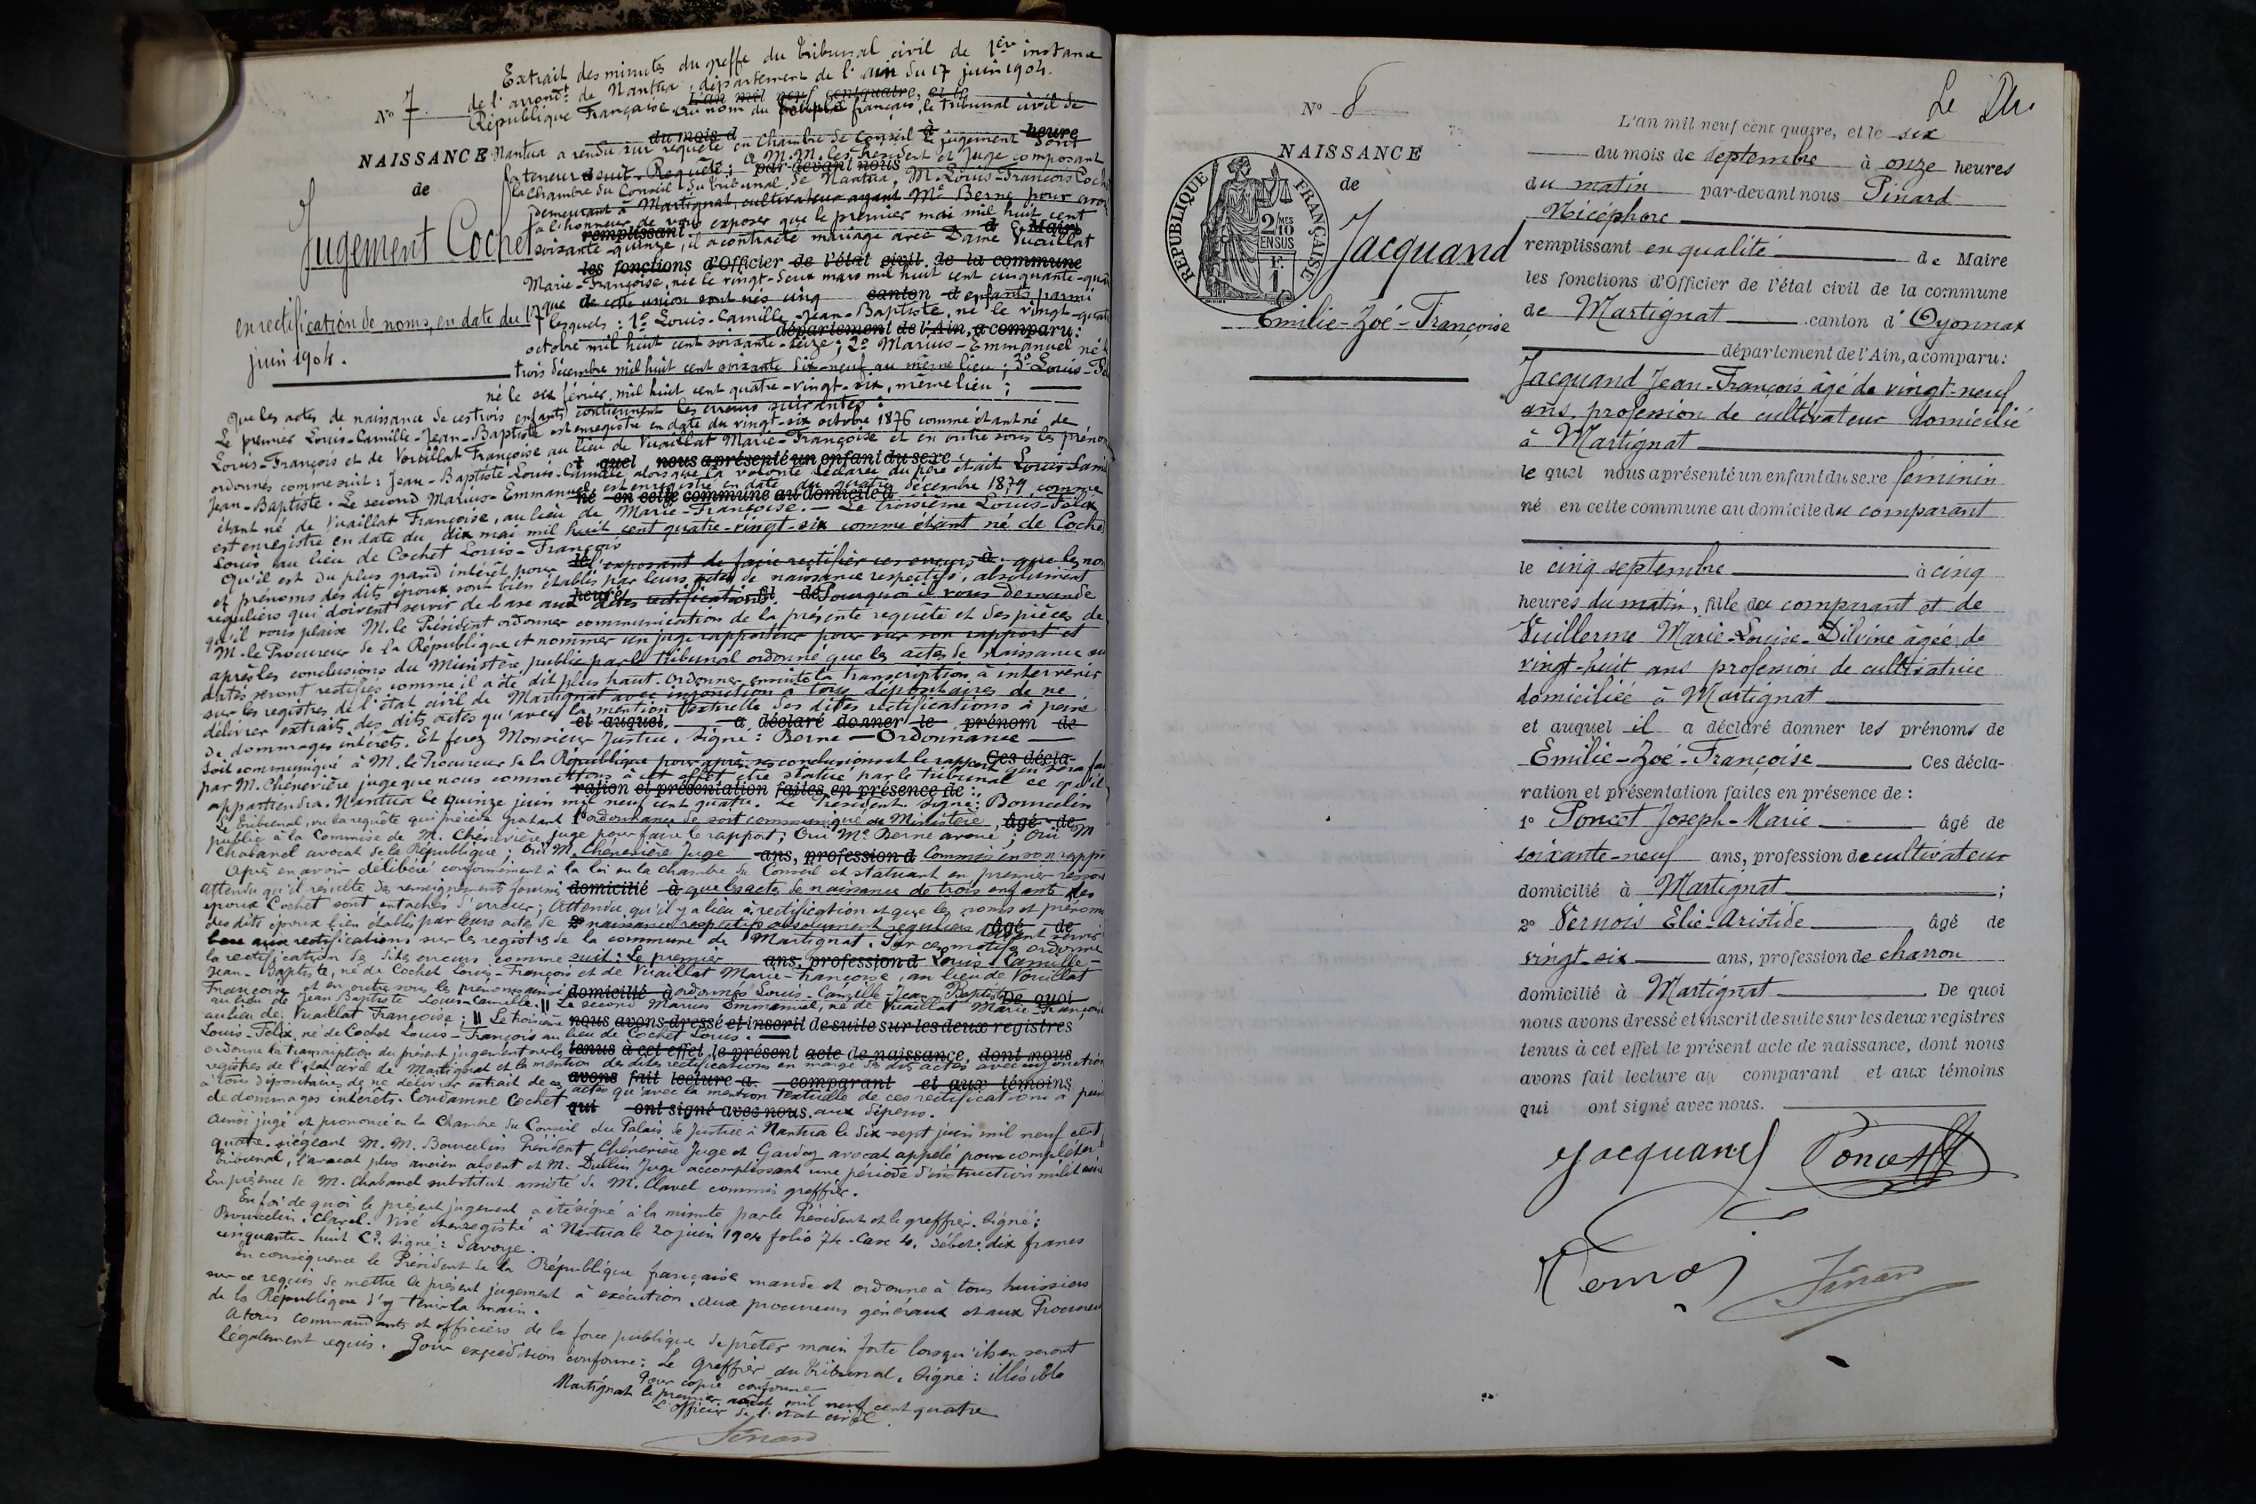 Extrait des minutes du greffe du tribunal civil de 1ère instance
de l'arrondt de Nantua, département de l'Ain du 17 juin 1904.
L'an mil neuf cent quatre, et le
République Française. Au nom du peuple français, le tribunal civil de
No 7
du mois d à heure
NAISSANCE
Nantua a rendu sur requête en Chambre du Conseil le jugement dont
de
la teneur suit. Requête : A M.M. les Président et Juge composant
par-devant nous
la Chambre du Conseil du tribunal de Nantua, M. Louis-François Cochet
Jugement Cochet
demeurant à Martignat, cultivateur ayant Me Berne pour avoué
a l'honneur de vous exposer que le premier mai mil huit cent
remplissant d Maire
soixante-quinze, il a contracté mariage avec Dame Vuaillat
les fonctions d'Officier de l'état civil de la commune
Marie-Françoise, née le vingt-deux mars mil huit cent cinquante-quatre
en rectification de noms, en date du 17
que de cette union sont nés cinq enfants parmi
canton d
juin 1904.
lesquels : 1o Louis-Camille-Jean-Baptiste, né le vingt-quatre
département de l'Ain, a comparu :
octobre mil huit cent soixante-seize ; 2o Marius-Emmanuel né le
trois décembre mil huit cent soixante dix-neuf au même lieu ; 3o Louis-Félix
né le six février, mil huit cent quatre-vingt-six, même lieu ;
Que les actes de naissance de ces trois enfants contiennent les erreurs suivantes :
Le premier Louis-Camille-Jean-Baptiste est enregistré en date du vingt-six octobre 1876 comme étant né de
Louis-François et de Vuaillat Françoise au lieu de Vuaillat Marie-Françoise et en outre sous les prénoms
quel nous a présenté un enfant du sexe
ordonnés comme suit : Jean-Baptiste-Louis-Camille alors que la volonté déclarée du père était Louis-Camille
Jean-Baptiste. Le second Marius-Emmanuel est enregistré en date du quatre décembre 1879 comme
né en cette commune au domicile d
étant né de Vuaillat Françoise, au lieu de Marie-Françoise. — Le troisième Louis-Félix
est enregistré en date du dix mai mil huit cent quatre-vingt-six comme étant né de Cochet
Louis au lieu de Cochet Louis-François
Qu'il est du plus grand intérêt pour l'exposant de faire rectifier ces erreurs ; que les noms
le à
et prénoms des dits époux sont bien établis par leurs actes de naissance respectifs, absolument
réguliers qui doivent servir de base aux dites rectifications. Pourquoi il vous demande
heure fil de
qu'il vous plaise M. le Président ordonner communication de la présente requête et des pièces de
M. le Procureur de la République et nommer un juge rapporteur pour sur son rapport et
après les conclusions du Ministère public par le tribunal ordonné que les actes de naissance sus
datés seront rectifiés comme il a été dit plus haut. Ordonner ensuite la transcription à intervenir
sur les registres de l'état civil de Martignat avec injonction à tous dépositaires de ne
délivrer extraits des dits actes qu'avec la mention textuelle des dites rectifications à peine
et auquel a déclaré donner le prénom de
de dommages intérêts. Et ferez Monsieur Justice. Signé : Berne — Ordonnance
Soit communiqué à M. le Procureur de la République pour après ses conclusions et le rapport qui sera fait
Ces décla-
par M. Chénevière juge que nous commettons à cet effet être statué par le tribunal ce qu'il
ration et présentation faites en présence de :
appartiendra. Nantua le quinze juin mil neuf cent quatre. Le Président. Signé : Bourcelin
Le tribunal, vu la requête qui précède ensemble l'ordonnance de soit communiqué au Ministère
âgé de
public à la Commise de M. Chénevière, juge pour faire le rapport ; Ouï Me Berne avoué ; Ouï M
Chabanel avocat de la République ; Ouï M. Chénevière Juge Commis en son rapport
ans, profession d
Après en avoir délibéré conformément à la loi en la Chambre du Conseil et statuant en premier ressort
Attendu qu'il résulte des renseignements fournis que les actes de naissance de trois enfants des
domicilié à
époux Cochet sont entachés d'erreur ; Attendu qu'il y a lieu à rectification et que les noms et prénoms
des dits époux bien établis par leurs actes de naissance respectifs absolument réguliers doivent servir
2o âgé de
base aux rectifications sur les registres de la commune de Martignat. Par ces motifs ordonne
la rectification des dites erreurs comme suit : Le premier Louis Camille-
ans, profession d
Jean-Baptiste, né de Cochet Louis-François et de Vuaillat Marie-Françoise, au lieu de Vuaillat
Françoise et en outre sous les prénoms ainsi ordonnés Louis-Camille-Jean Baptiste
domicilié à De quoi
au lieu de Jean Baptiste Louis-Camille. Le second Marius Emmanuel, né de Vuaillat Marie-Françoise
au lieu de Vuaillat Françoise ; Le troisième
nous avons dressé et inscrit de suite sur les deux registres
Louis-Félix, né de Cochet Louis-François au lieu de Cochet Louis.
ordonne la transcription du présent jugement sur les
tenus à cet effet le présent acte de naissance, dont nous
registres de l'état civil de Martignat et la mention des dites rectifications en marge des dits actes avec injonction
avons fait lecture a comparant et aux témoins
à tous dépositaires de ne délivrer extrait de ces actes qu'avec la mention textuelle de ces rectifications à peine
de dommages intérêts. Condamne Cochet aux dépens.
qui ont signé avec nous.
Ainsi jugé et prononcé en la Chambre du Conseil du Palais de Justice à Nantua le dix-sept juin mil neuf cent
quatre. siégeant M.M. Bourcelin Président, Chénevière Juge et Gardoz avocat appelé pour compléter
tribunal, l'avocat plus ancien absent et M. Dullin Juge accomplissant une période d'instruction militaire
En présence de M. Chabanel substitut assisté de M. Clavel commis greffier.
En foi de quoi le présent jugement a été signé à la minute par le Président et le greffier. Signé :
Bourcelin. Clavel. Visé et enregistré à Nantua le 20 juin 1904 folio 74 Case 4. Débet : dix francs
cinquante-huit Cs. Signé : Savoye.
En conséquence le Président de la République française mande et ordonne à tous huissiers
sur ce requis de mettre le présent jugement à exécution. Aux procureurs généraux et aux Procureurs
de la République d'y tenir la main.
A tous commandants et officiers de la force publique de prêter main forte lorsqu'ils en seront
légalement requis. Pour expédition conforme : Le Greffier du tribunal. Signé : illisible
Pour copie conforme
Martignat le premier août mil neuf cent quatre
L'officier de l'état civil.
Pinard
No 8
NAISSANCE
de
Jacquand
Emilie-Zoé-Françoise
RÉPUBLIQUE FRANÇAISE
2/10 EN SUS
1F.
Le
L'an mil neuf cent quatre, et le six
du mois de septembre à onze heures
du matin par-devant nous Pinard
Nicéphore
remplissant en qualité de Maire
les fonctions d'Officier de l'état civil de la commune
de Martignat canton d'Oyonnax
département de l'Ain, a comparu :
Jacquand Jean-François âgé de vingt-neuf
ans, profession de cultivateur domicilié
à Martignat
le quel nous a présenté un enfant du sexe féminin
né en cette commune au domicile du comparant
le cinq septembre à cinq
heures du matin, fille du comparant et de
Vuillerme Marie-Louise-Dilvine âgée de
vingt-huit ans profession de cultivatrice
domiciliée à Martignat
et auquel il a déclaré donner les prénoms de
Emilie-Zoé-Françoise Ces décla-
ration et présentation faites en présence de :
1o Poncet Joseph-Marie âgé de
soixante-neuf ans, profession de cultivateur
domicilié à Martignat ;
2o Vernois Elie-Aristide âgé de
vingt-six ans, profession de charron
domicilié à Martignat De quoi
nous avons dressé et inscrit de suite sur les deux registres
tenus à cet effet le présent acte de naissance, dont nous
avons fait lecture au comparant et aux témoins
qui ont signé avec nous.
Jacquand Poncet
Vernois Pinard